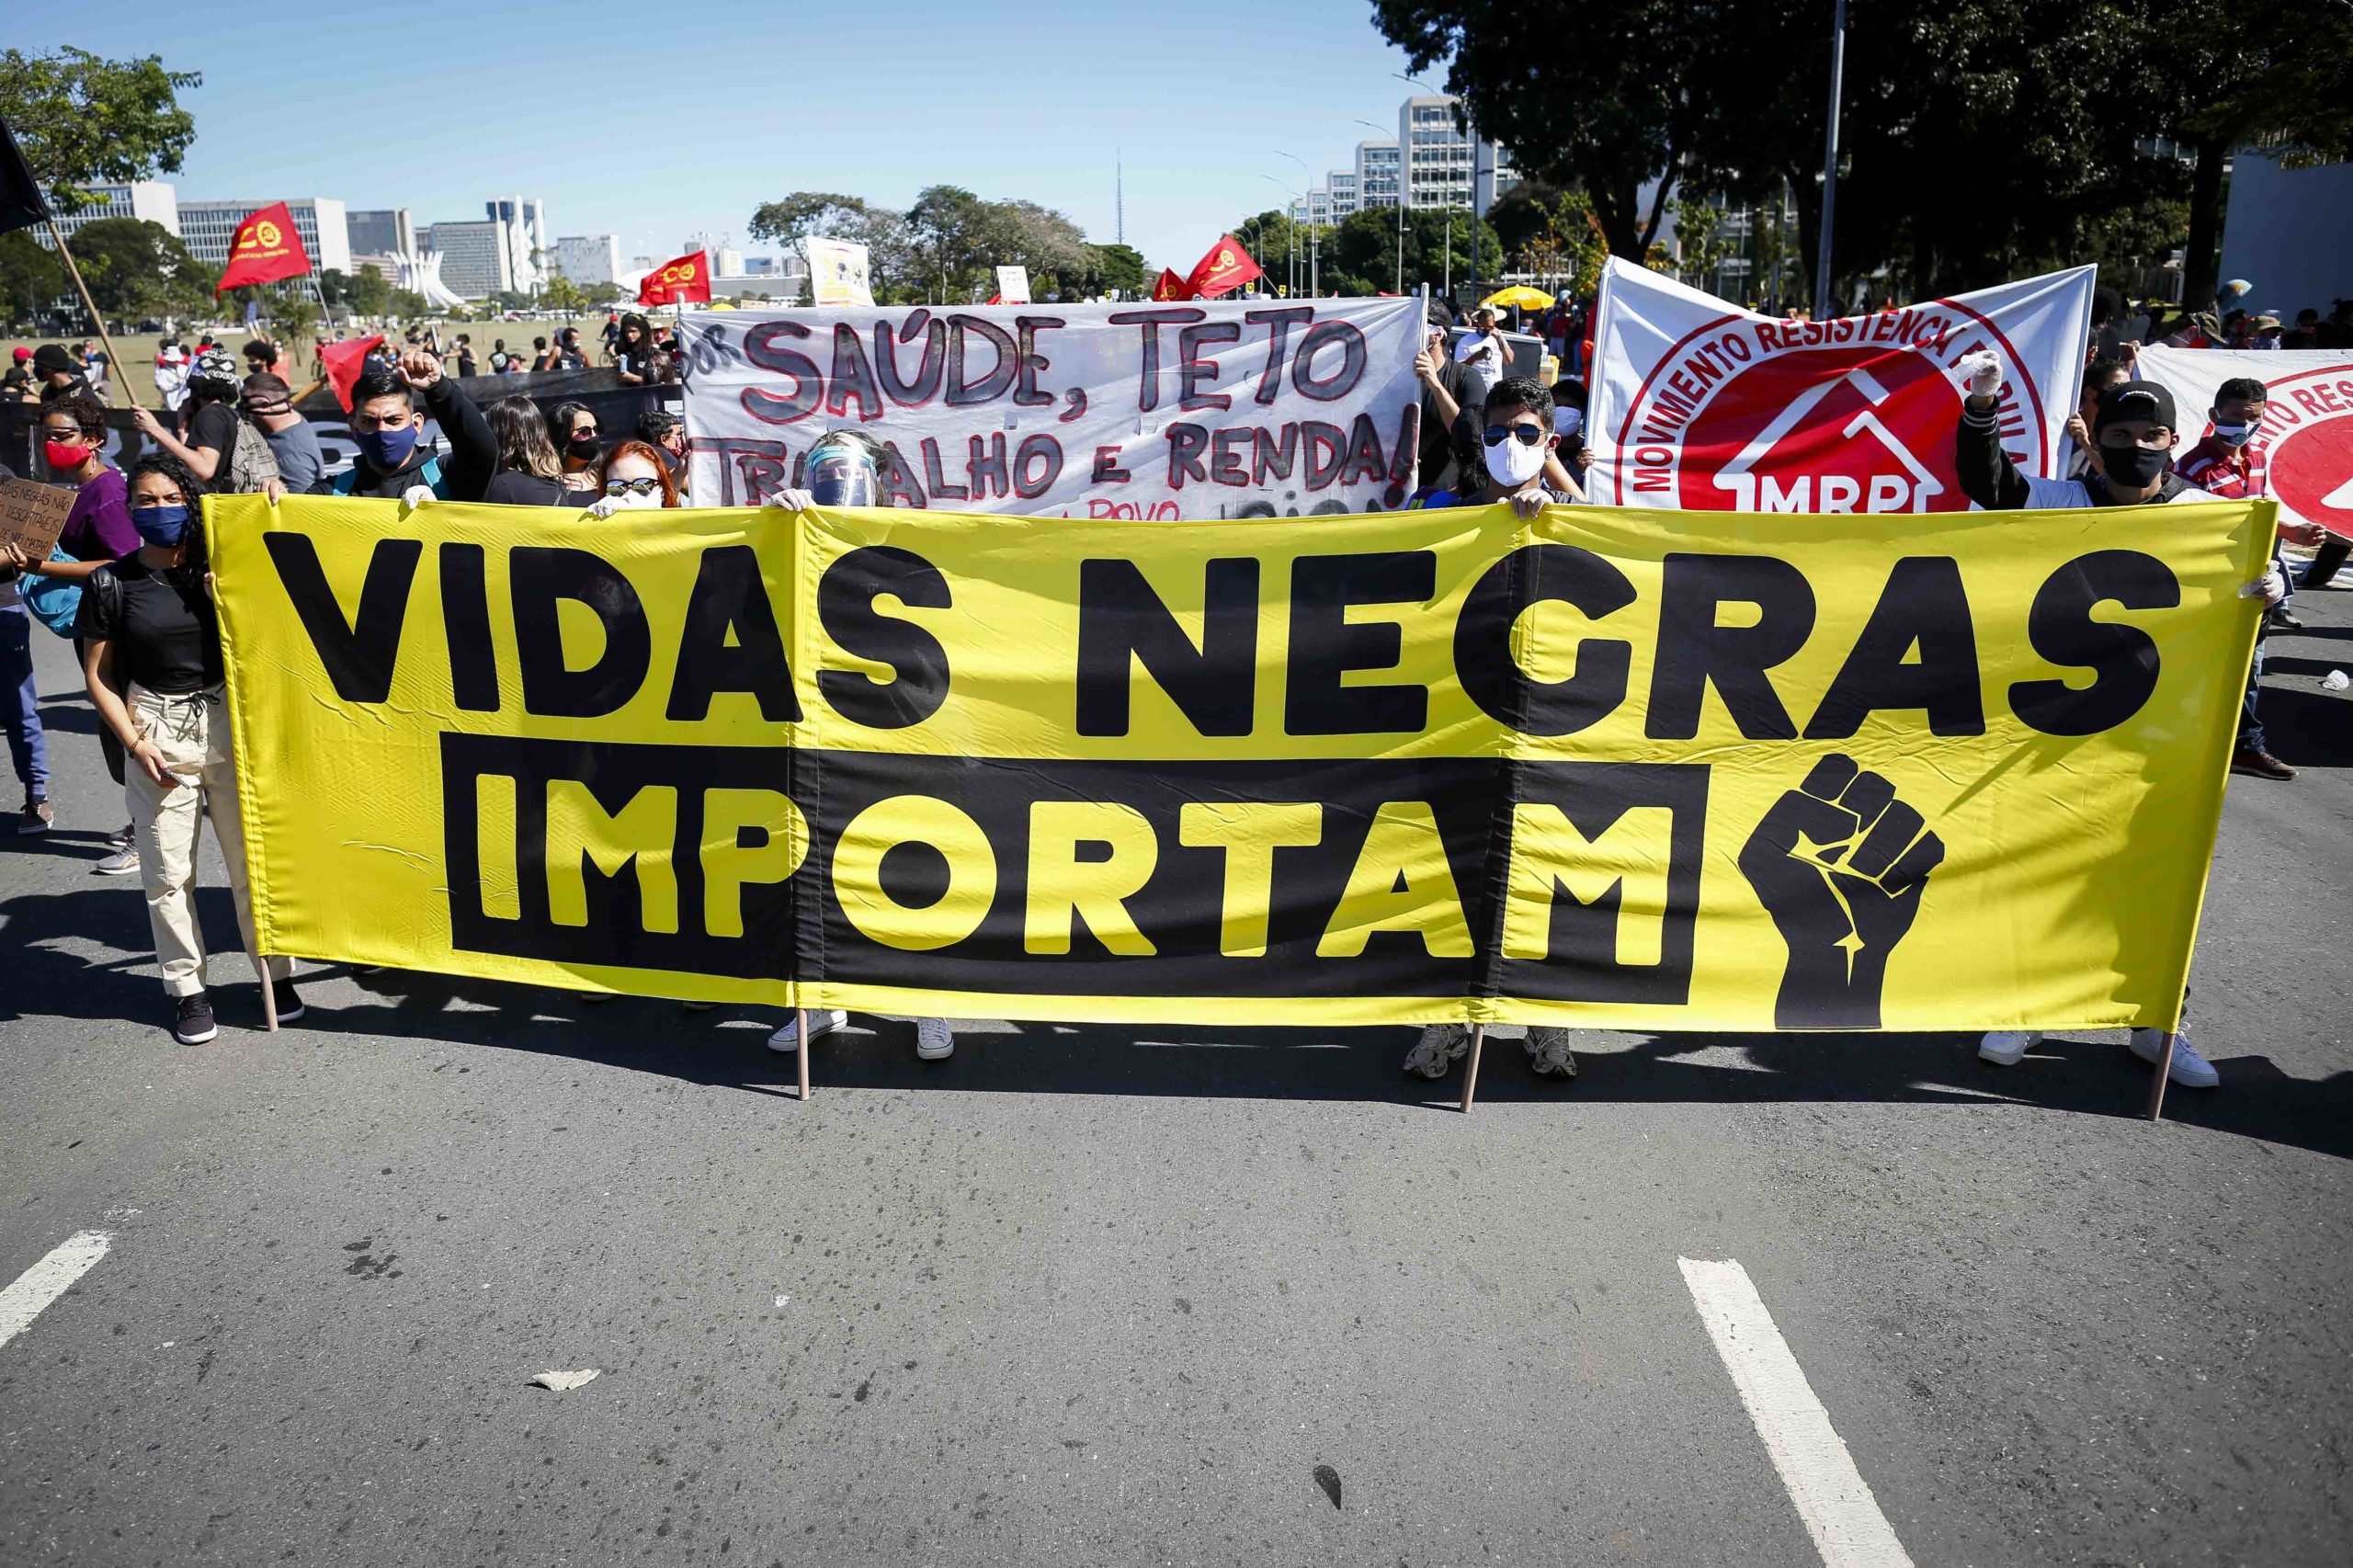 POR SAÚDE, TETO
TRABALHO E RENDA!
POVO
MOVIMENTO RESISTÊNCIA
MRP
VIDAS NEGRAS NÃO
DESCARTÁVEIS
DE NOS MATAR!
VIDAS NEGRAS
IMPORTAM